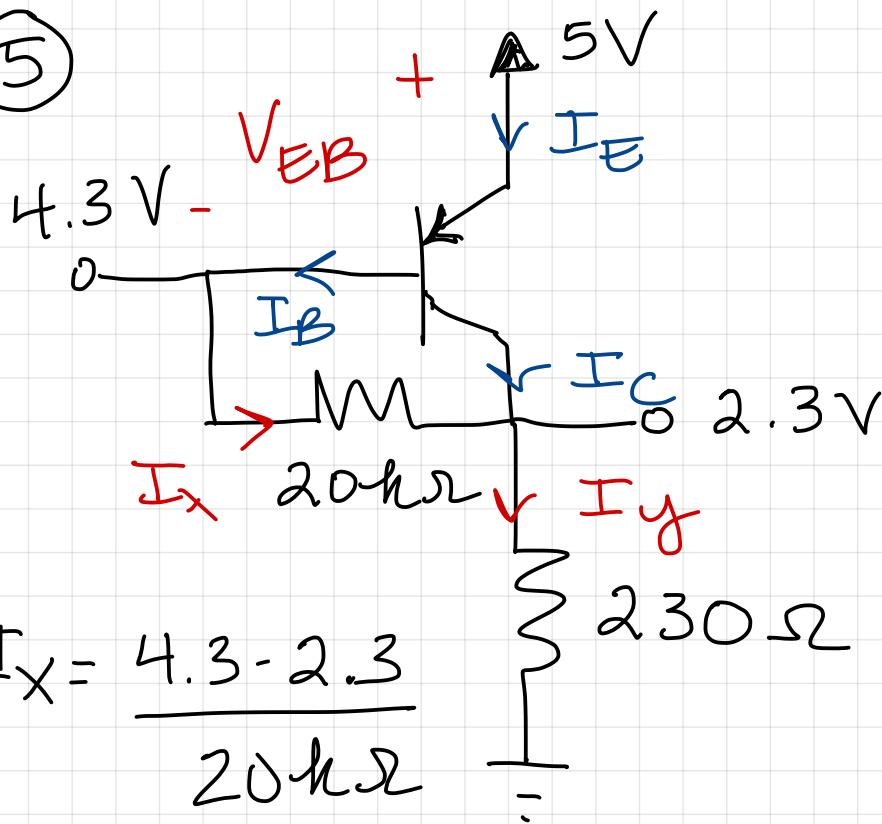 5
5V
+
I_E
V_EB
4.3V -
I_B
I_C
2.3V
I_x
20kΩ
I_y
230Ω
I_x = 4.3 - 2.3
20kΩ